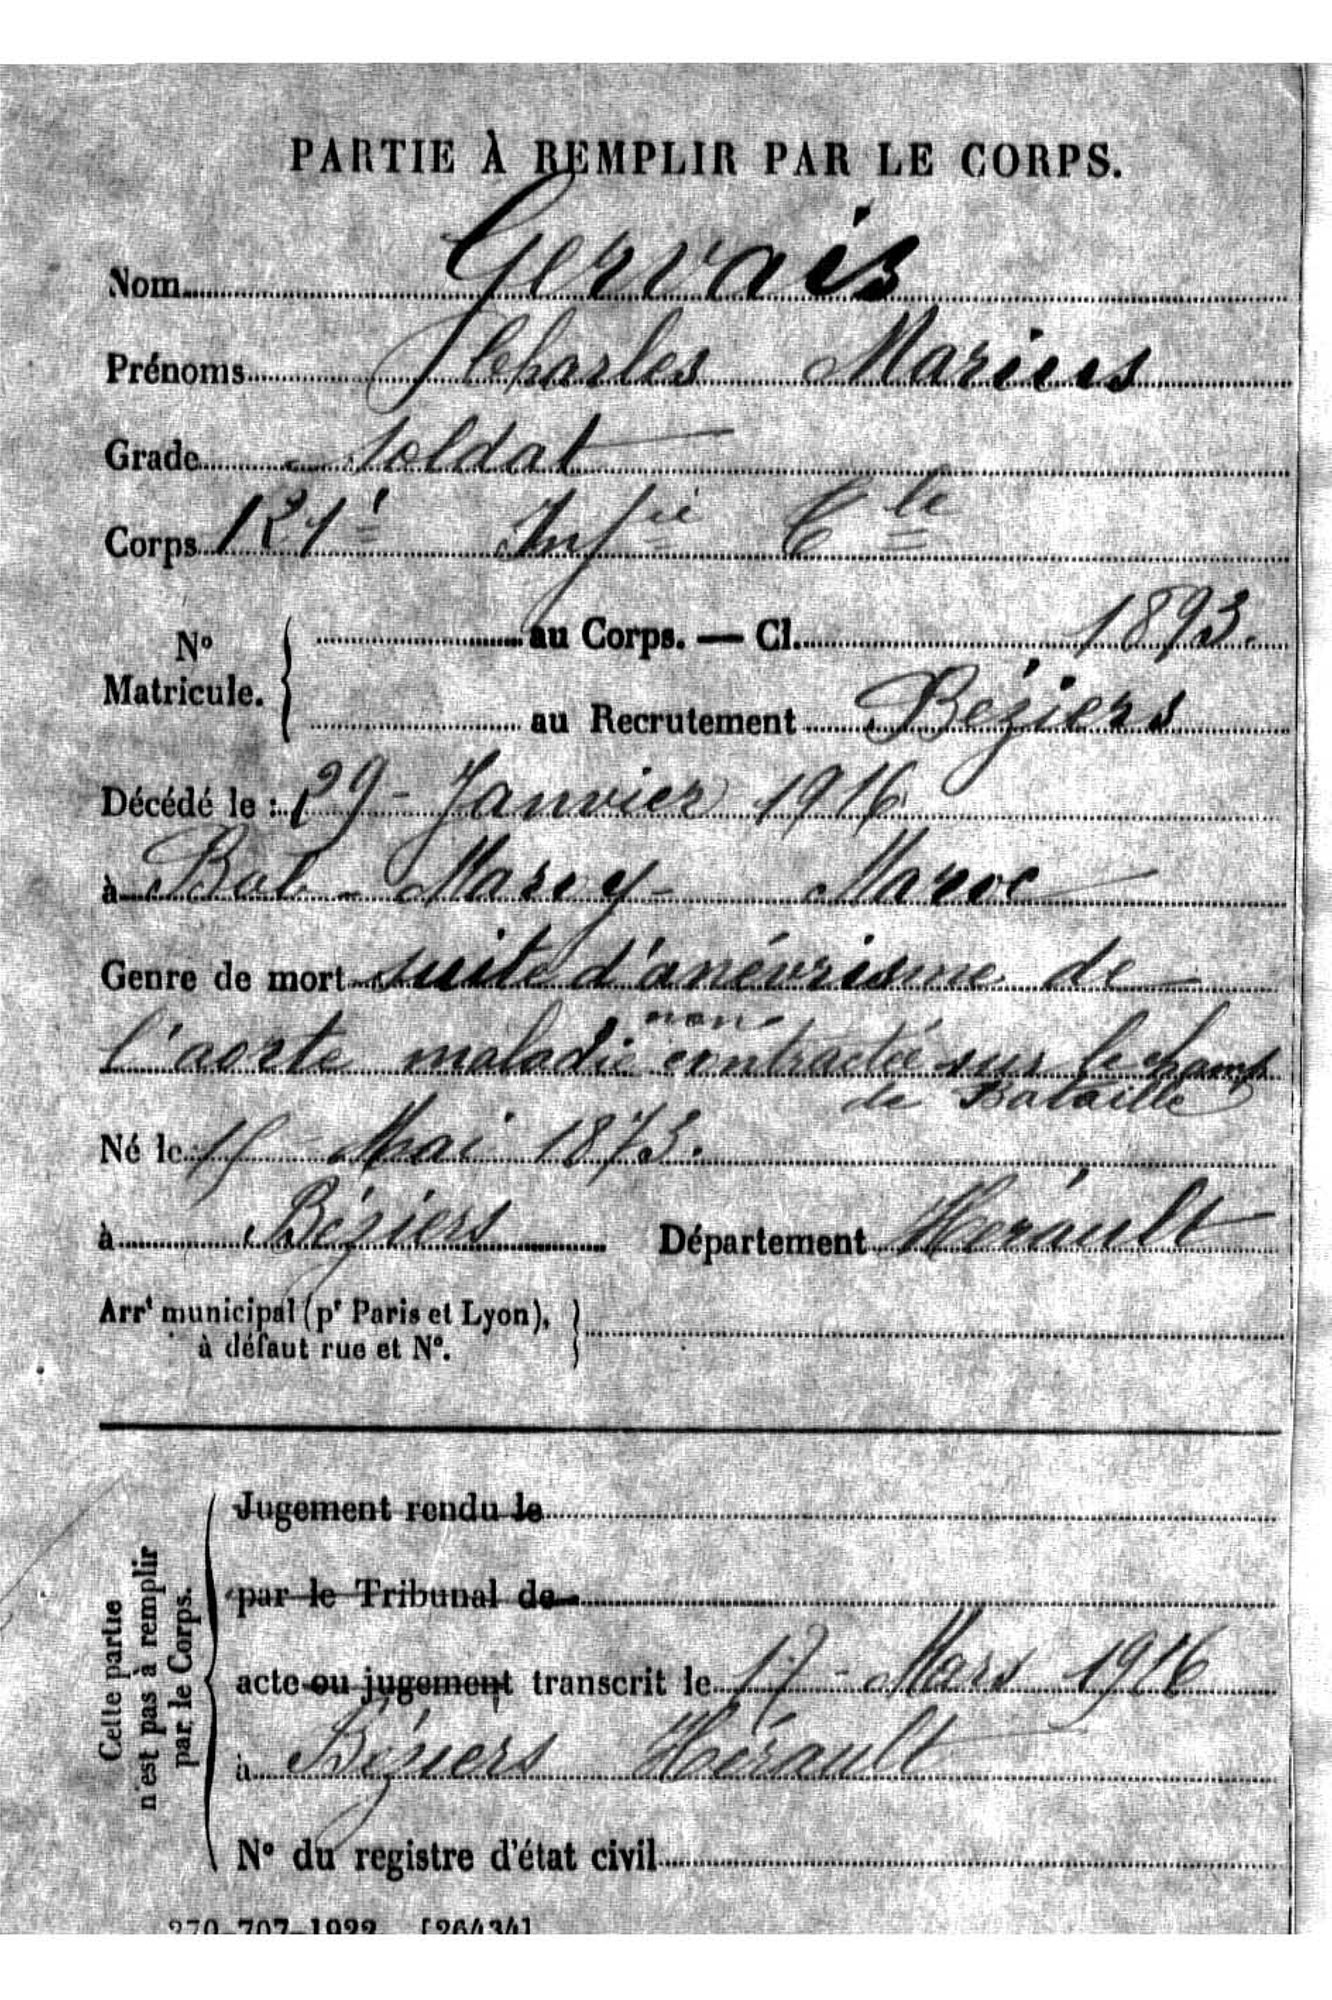 PARTIE À REMPLIR PAR LE CORPS.
Nom Gervais
Prénoms Charles Marius
Grade Soldat
Corps Inf^ie C^le
N° Matricule. { au Corps. — Cl. 1893.
au Recrutement Béziers
Décédé le : 29 - Janvier 1916
à Bab - Maroc
Genre de mort suite d'anévrisme de
l'aorte maladie non contractée sur le champ
de Bataille
Né le 15 Mai 1873.
à Béziers Département Hérault
Arr^t municipal (p^r Paris et Lyon), à défaut rue et N°.
Cette partie n'est pas à remplir par le Corps.
Jugement rendu le
par le Tribunal de
acte ou jugement transcrit le 17 - Mars 1916
à Béziers Hérault
N° du registre d'état civil
270-707-1922. [26434]